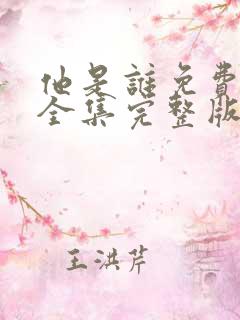 他是誰免費
全集完整版
王洪芹